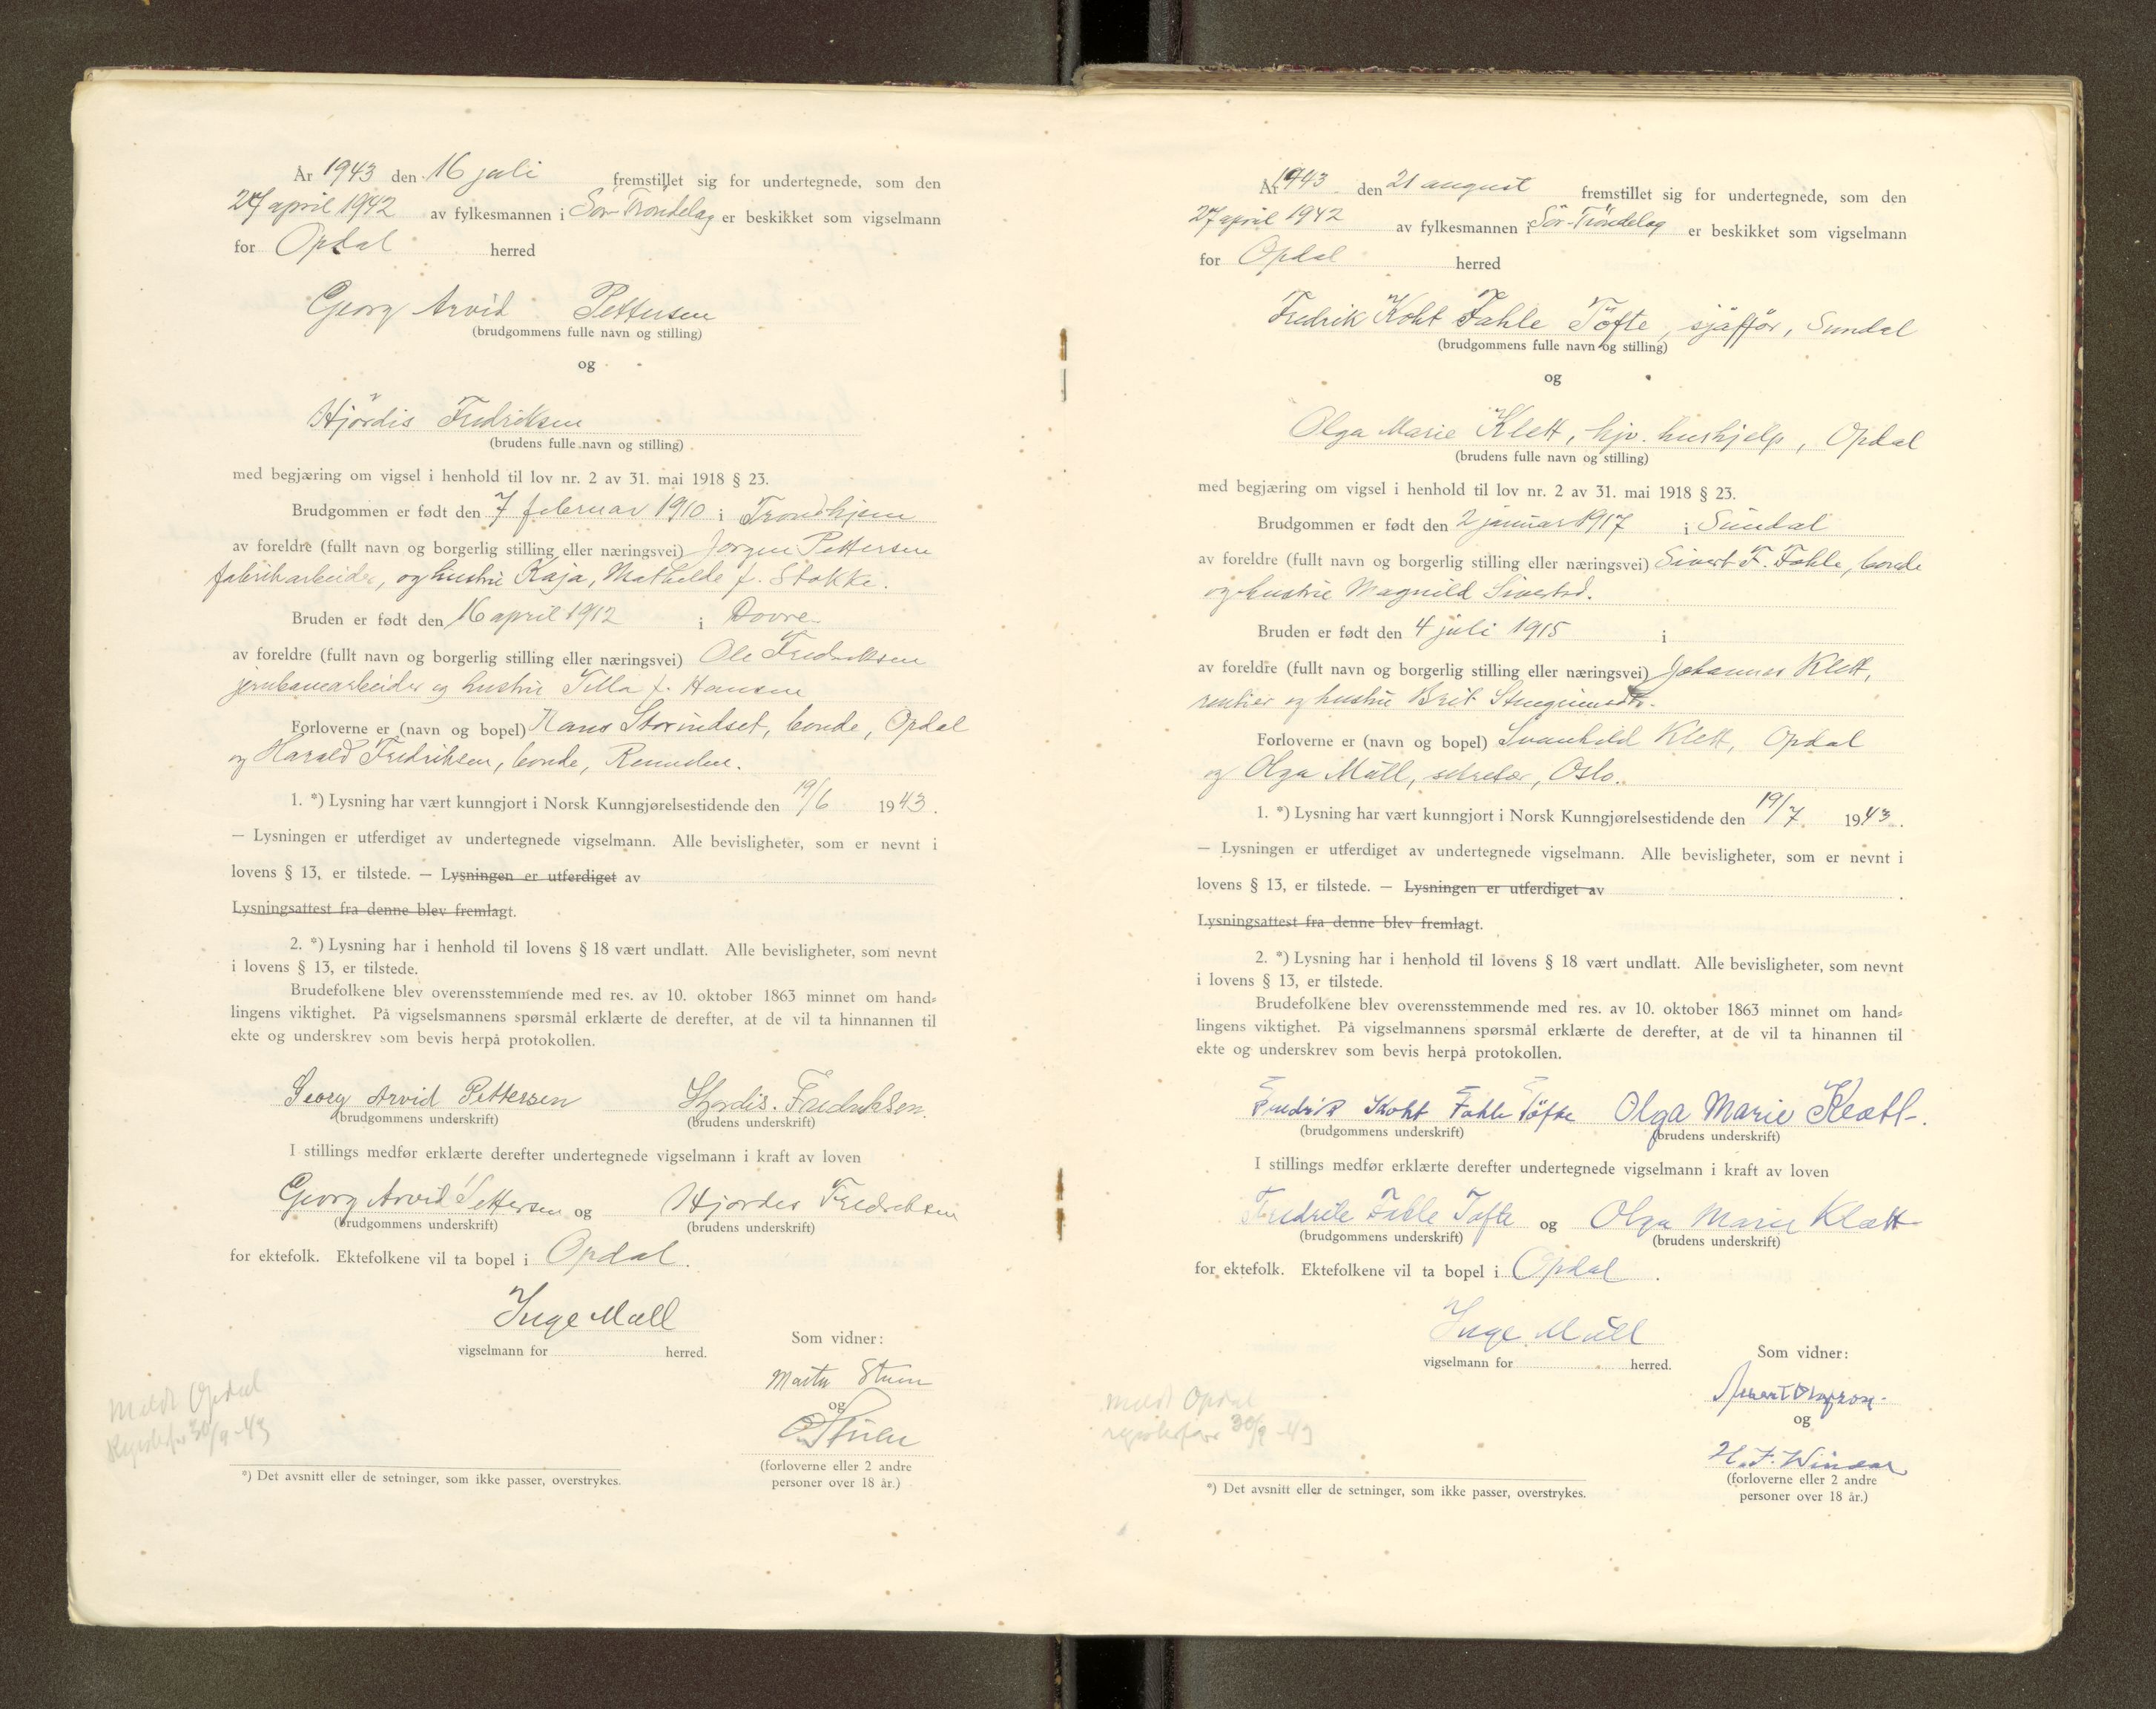 År 1943 den 16 juli fremstillet sig for undertegnede, som den
27 april 1942 av fylkesmannen i Sör-Tröndelag er beskikket som vigselmann
for Opdal herred
Georg Arvid Pettersen
(brudgommens fulle navn og stilling)
og
Hjördis Fredriksen
(brudens fulle navn og stilling)
med begjæring om vigsel i henhold til lov nr. 2 av 31. mai 1918 § 23.
Brudgommen er født den 7 februar 1910 i Trondhjem
av foreldre (fullt navn og borgerlig stilling eller næringsvei) Jörgen Pettersen
fabrikarbeider, og hustru Kaja, Mathilde f. Stokke.
Bruden er født den 16 april 1912 i Dovre
av foreldre (fullt navn og borgerlig stilling eller næringsvei) Ole Fredriksen
jernbanearbeider og hustru Tilla f. Hansen
Forloverne er (navn og bopel) Hans Storindset, bonde, Opdal
og Harald Fredriksen, bonde,
1. *) Lysning har vært kunngjort i Norsk Kunngjørelsestidende den 19/6 1943.
— Lysningen er utferdiget av undertegnede vigselmann. Alle bevisligheter, som er nevnt i
lovens § 13, er tilstede. — Lysningen er utferdiget av
Lysningsattest fra denne blev fremlagt.
2. *) Lysning har i henhold til lovens § 18 vært undlatt. Alle bevisligheter, som nevnt
i lovens § 13, er tilstede.
Brudefolkene blev overensstemmende med res. av 10. oktober 1863 minnet om hand-
lingens viktighet. På vigselsmannens spørsmål erklærte de derefter, at de vil ta hinnannen til
ekte og underskrev som bevis herpå protokollen.
Georg Arvid Pettersen Hjördis. Fredriksen.
(brudgommens underskrift) (brudens underskrift)
I stillings medfør erklærte derefter undertegnede vigselmann i kraft av loven
Georg Arvid Pettersen og Hjördis Fredriksen
(brudgommens underskrift) (brudens underskrift)
for ektefolk. Ektefolkene vil ta bopel i Opdal.
Inge Mæll
vigselmann for herred.
Som vidner:
Marta Stuen
og
O Stuen
(forloverne eller 2 andre
personer over 18 år.)
Meldt Opdal
Registerfør 30/9-43
*) Det avsnitt eller de setninger, som ikke passer, overstrykes.
År 1943 den 21 august fremstillet sig for undertegnede, som den
27 april 1942 av fylkesmannen i Sör-Tröndelag er beskikket som vigselmann
for Opdal herred
Fredrik Koht Fahle Töfte, sjåfför, Sundal
(brudgommens fulle navn og stilling)
og
Olga Marie Klett, hjv. hushjelp, Opdal
(brudens fulle navn og stilling)
med begjæring om vigsel i henhold til lov nr. 2 av 31. mai 1918 § 23.
Brudgommen er født den 2 januar 1917 i Sundal
av foreldre (fullt navn og borgerlig stilling eller næringsvei) Sivert F. Fahle, bonde
og hustru Magnild Sivertsd.
Bruden er født den 4 juli 1915 i
av foreldre (fullt navn og borgerlig stilling eller næringsvei) Johannes Klett,
rentier og hustru Brit
Forloverne er (navn og bopel) Svanhild Klett, Opdal
og Olga Mæll, sekretær, Oslo.
1. *) Lysning har vært kunngjort i Norsk Kunngjørelsestidende den 19/7 1943.
— Lysningen er utferdiget av undertegnede vigselmann. Alle bevisligheter, som er nevnt i
lovens § 13, er tilstede. — Lysningen er utferdiget av
Lysningsattest fra denne blev fremlagt.
2. *) Lysning har i henhold til lovens § 18 vært undlatt. Alle bevisligheter, som nevnt
i lovens § 13, er tilstede.
Brudefolkene blev overensstemmende med res. av 10. oktober 1863 minnet om hand-
lingens viktighet. På vigselmannens spørsmål erklærte de derefter, at de vil ta hinannen til
ekte og underskrev som bevis herpå protokollen.
Fredrik Koht Fahle Töfte Olga Marie Klætt.
(brudgommens underskrift) (brudens underskrift)
I stillings medfør erklærte derefter undertegnede vigselmann i kraft av loven
Fredrik Fahle Tofte og Olga Marie Klætt
(brudgommens underskrift) (brudens underskrift)
for ektefolk. Ektefolkene vil ta bopel i Opdal.
Inge Mæll
vigselmann for herred.
Som vidner:
og
H. F.
(forloverne eller 2 andre
personer over 18 år.)
Meldt Opdal
registerfører 30/9-43
*) Det avsnitt eller de setninger, som ikke passer, overstrykes.